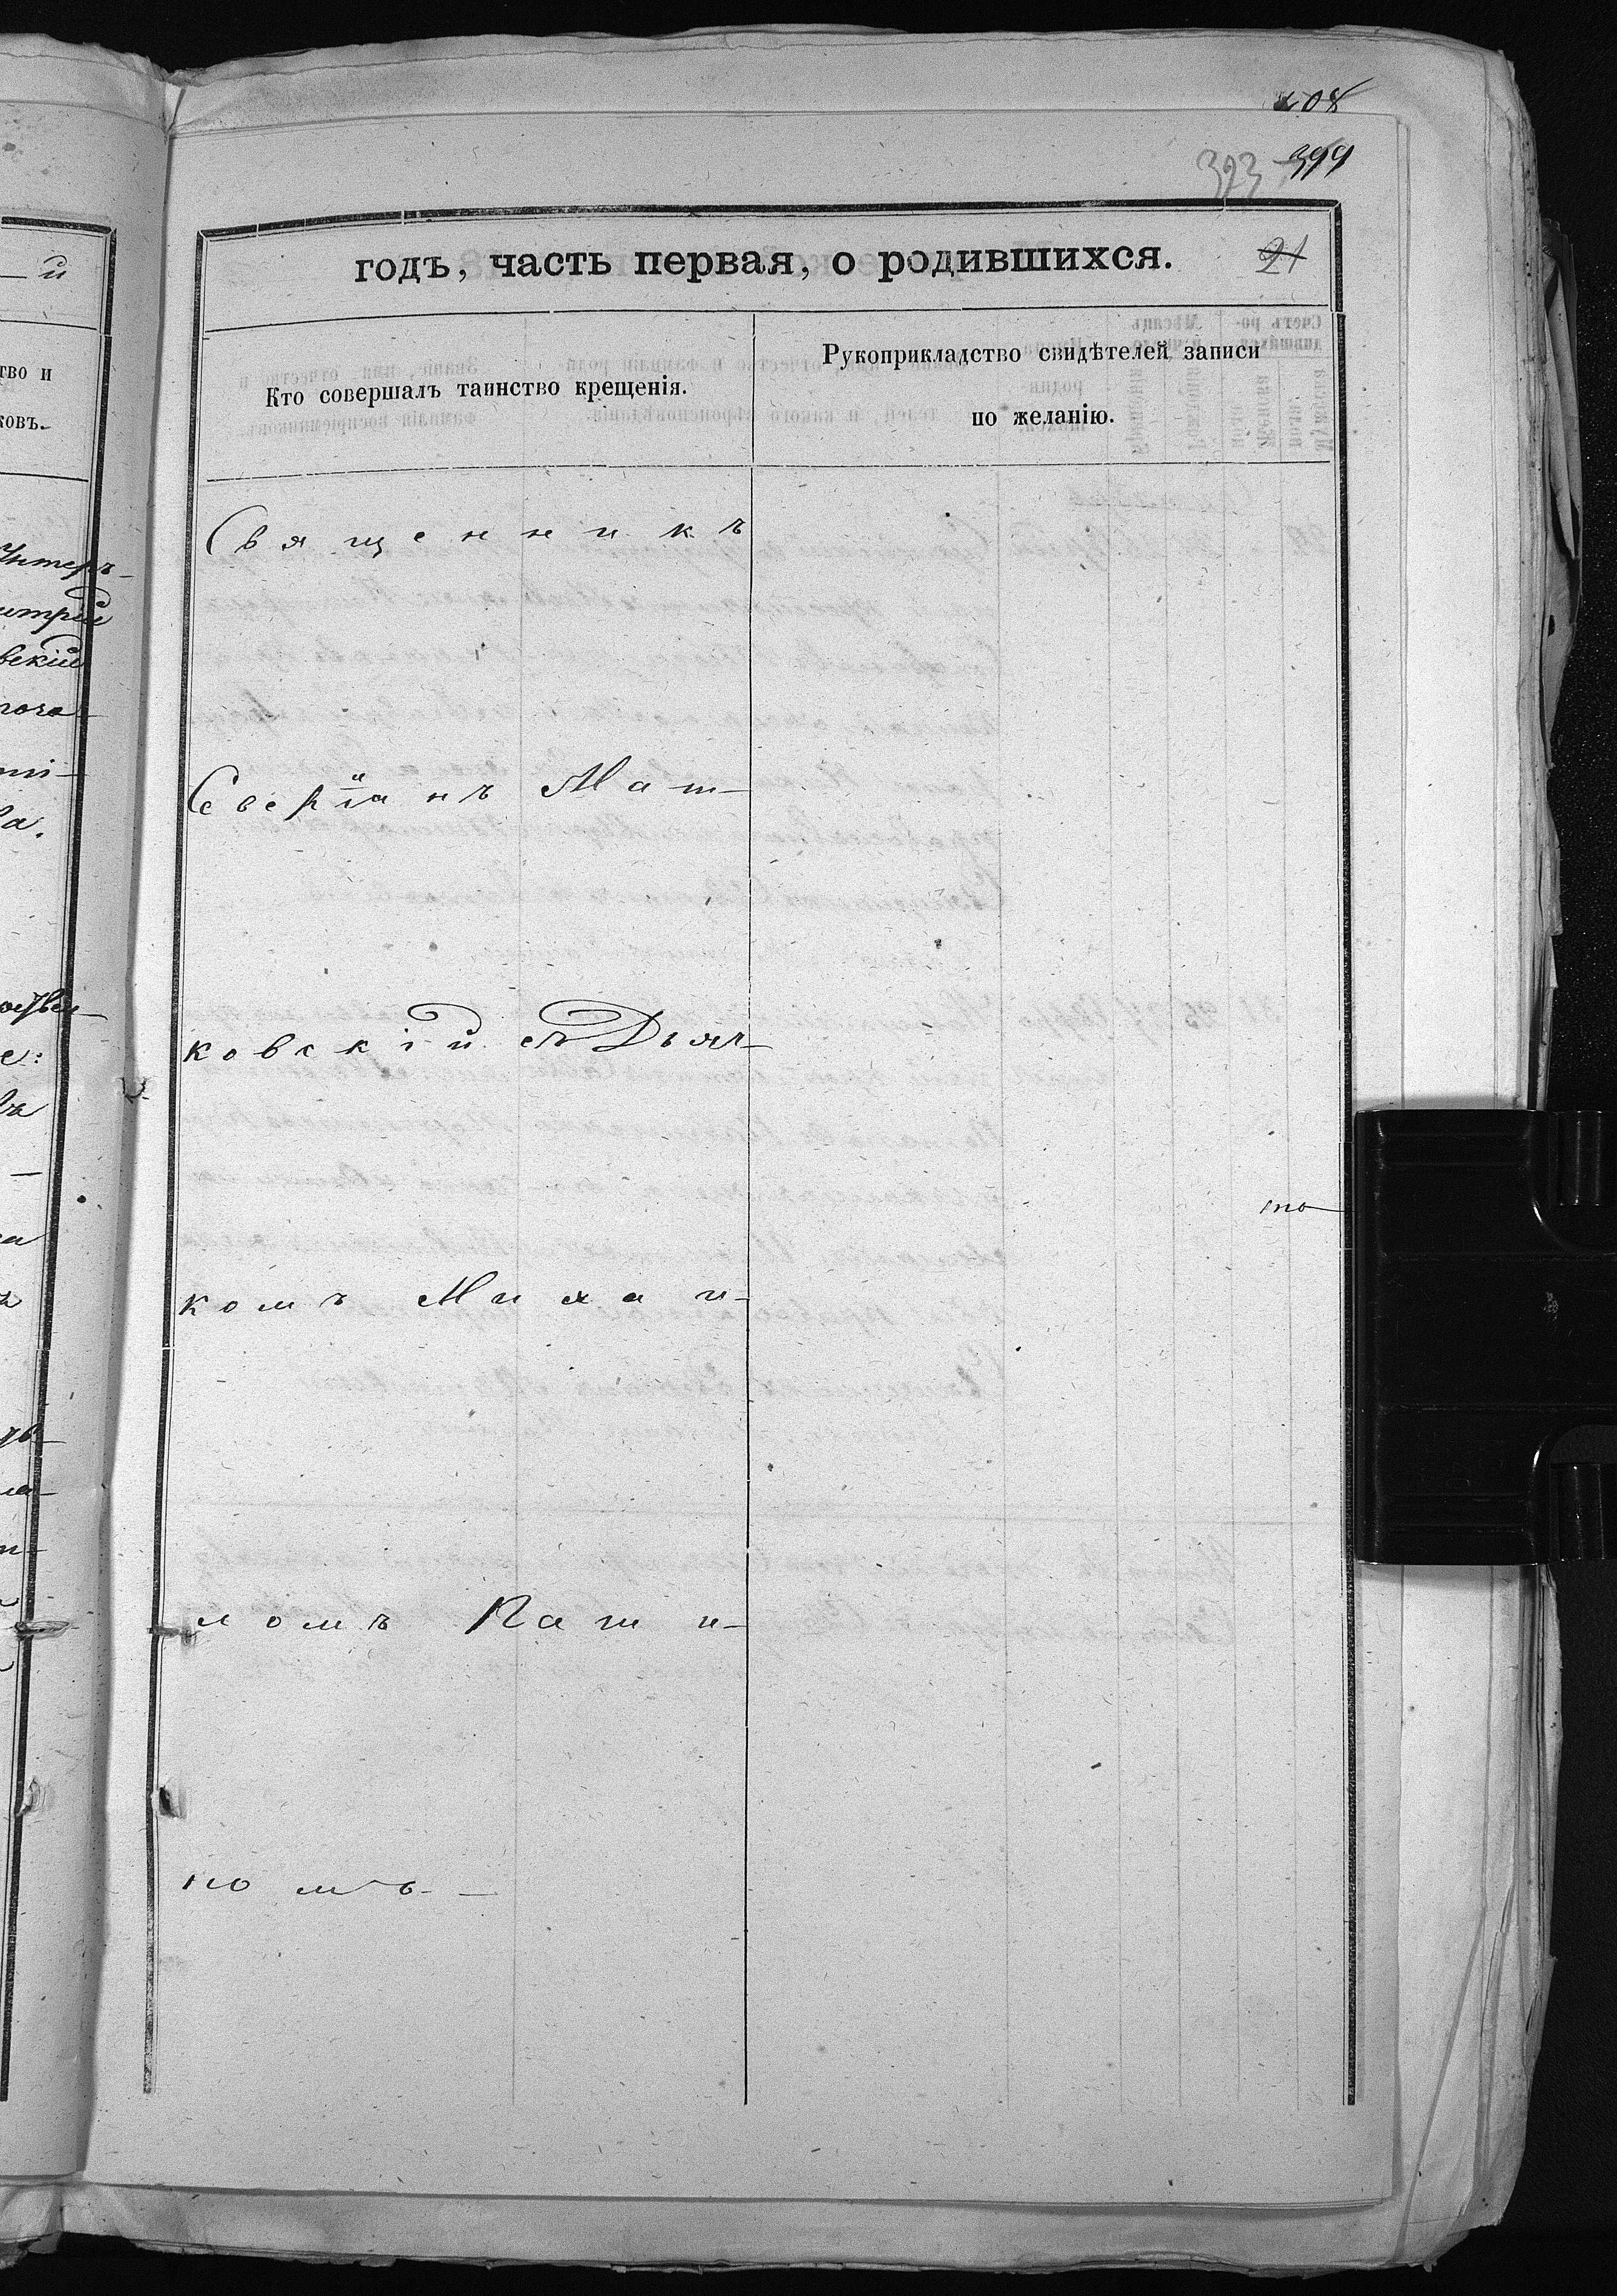 208
393 399
годъ, часть первая, о родившихся. 21
Кто совершалъ таинство крещенія.
Рукоприкладство свидѣтелей записи
по желанію.
Священникъ
Северіанъ Мат-
ковскій съ Дьяч-
комъ Михаи-
ломъ Паши-
номъ.
то
й
тво и
ковъ.